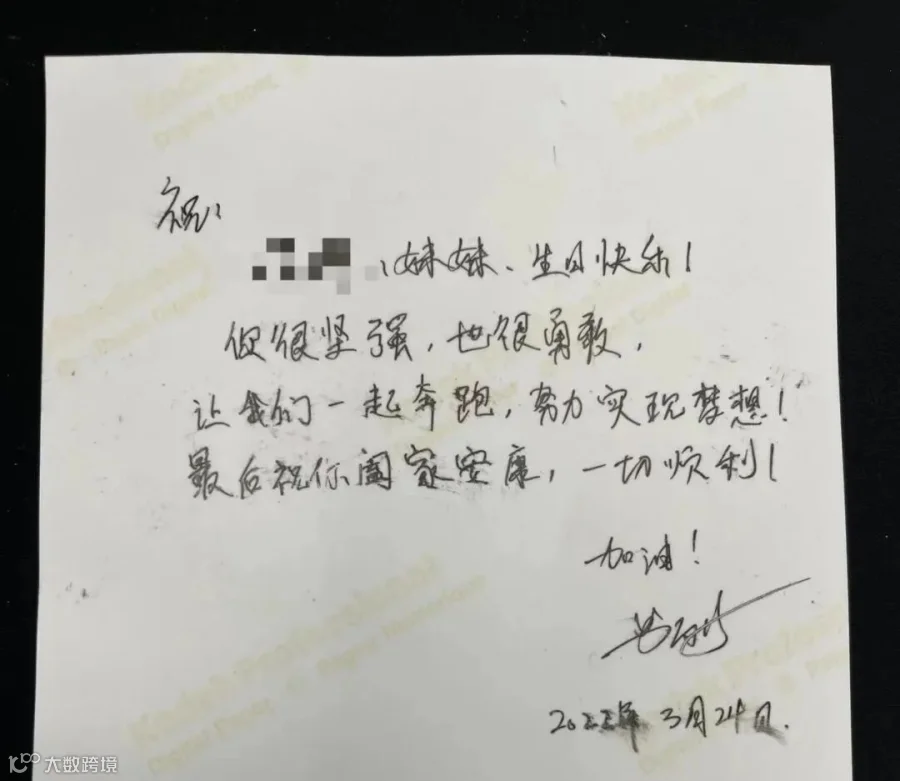 祝：
妹妹、生日快乐！
你很坚强，也很勇敢，
让我们一起奔跑，努力实现梦想！
最后祝你阖家安康，一切顺利！
加油！
2022年 3月24日.
大数跨境